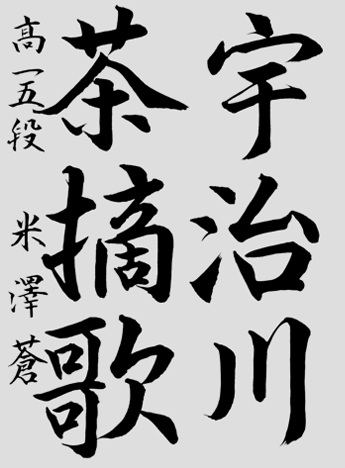 宇治川
茶摘歌
高一五段 米澤蒼